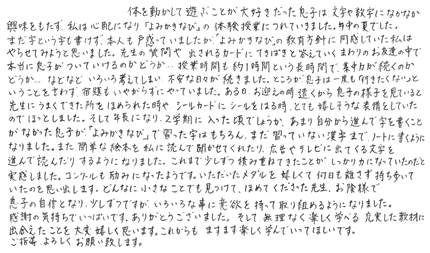 体を動かして遊ぶことが大好きだった息子は文字や数字になかなか
興味をもたず、私は心配になり「よみかきなび」の体験授業につれていきました。年中の夏でした。
まだ字という字も書けず、本人も戸惑っていましたが「よみかきなび」の教育方針に同感していた私は
やらせてみようと思いました。先生の質問や出されるカードに、てきぱきと答えていくまわりのお友達の中で
本当に息子がついていけるのかどうか…授業時間も約1時間という長時間で、集中力が続くのか
どうか…などなど いろいろ考えてしまい 不安な日々が続きました。ところが、息子は一度も「行きたくない」と
いうことを言わず、宿題も いやがらずにやっていました。ある日、お迎えの時遠くから息子の様子を見ていると
先生にうまくできた所をほめられた時や シールカードにシールをはる時、とても嬉しそうな表情をしていた
のでほっとしました。そして年長になり、2学期に入った頃でしょうか、あまり自分から進んで字を書くこと
がなかった息子が「よみかきなび」で習った字はもちろん、まだ習っていない漢字までノートに書くように
なりました。また簡単な絵本を私に読んで聞かせてくれたり、広告やテレビに出てくる文字を
進んで読んだりするようになりました。これまで少しずつ積み重ねてきたことが しっかり力になっていたのだと
実感しました。コンクールも励みになったようです。いただいたメダルを 嬉しくて何日も離さず持ち歩いて
いたのを思い出します。どんなに小さなことでも見つけて、ほめてくださった先生、お陰様で
息子の自信となり、少しずつですが、いろいろな事に意欲を持って取り組めるようになりました。
感謝の気持ちでいっぱいです。ありがとうございました。そして 無理なく楽しく学べる 充実した教材に
出会えたことを大変 嬉しく思います。これからも ますます楽しく学んでいってほしいです。
ご指導、よろしくお願い致します。